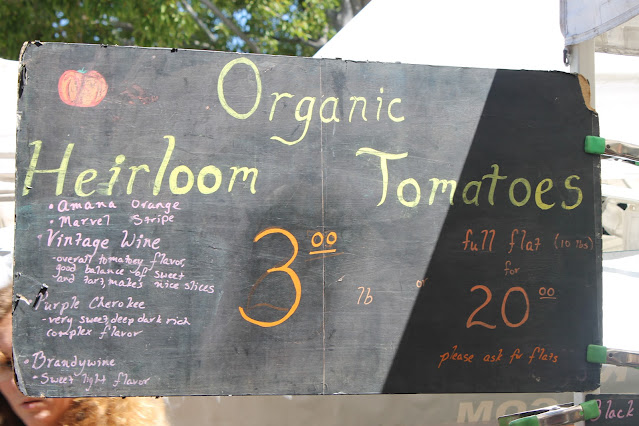 Organic
Heirloom Tomatoes
• Amana Orange
• Marvel Stripe
• Vintage Wine
- overall tomatoey flavor,
good balance of sweet
and tart, makes nice slices
• Purple Cherokee
- very sweet, deep dark rich
complex flavor
• Brandywine
- Sweet light flavor
3.00
lb
or
full flat (10 lbs)
for
20.00
please ask for flats
Black